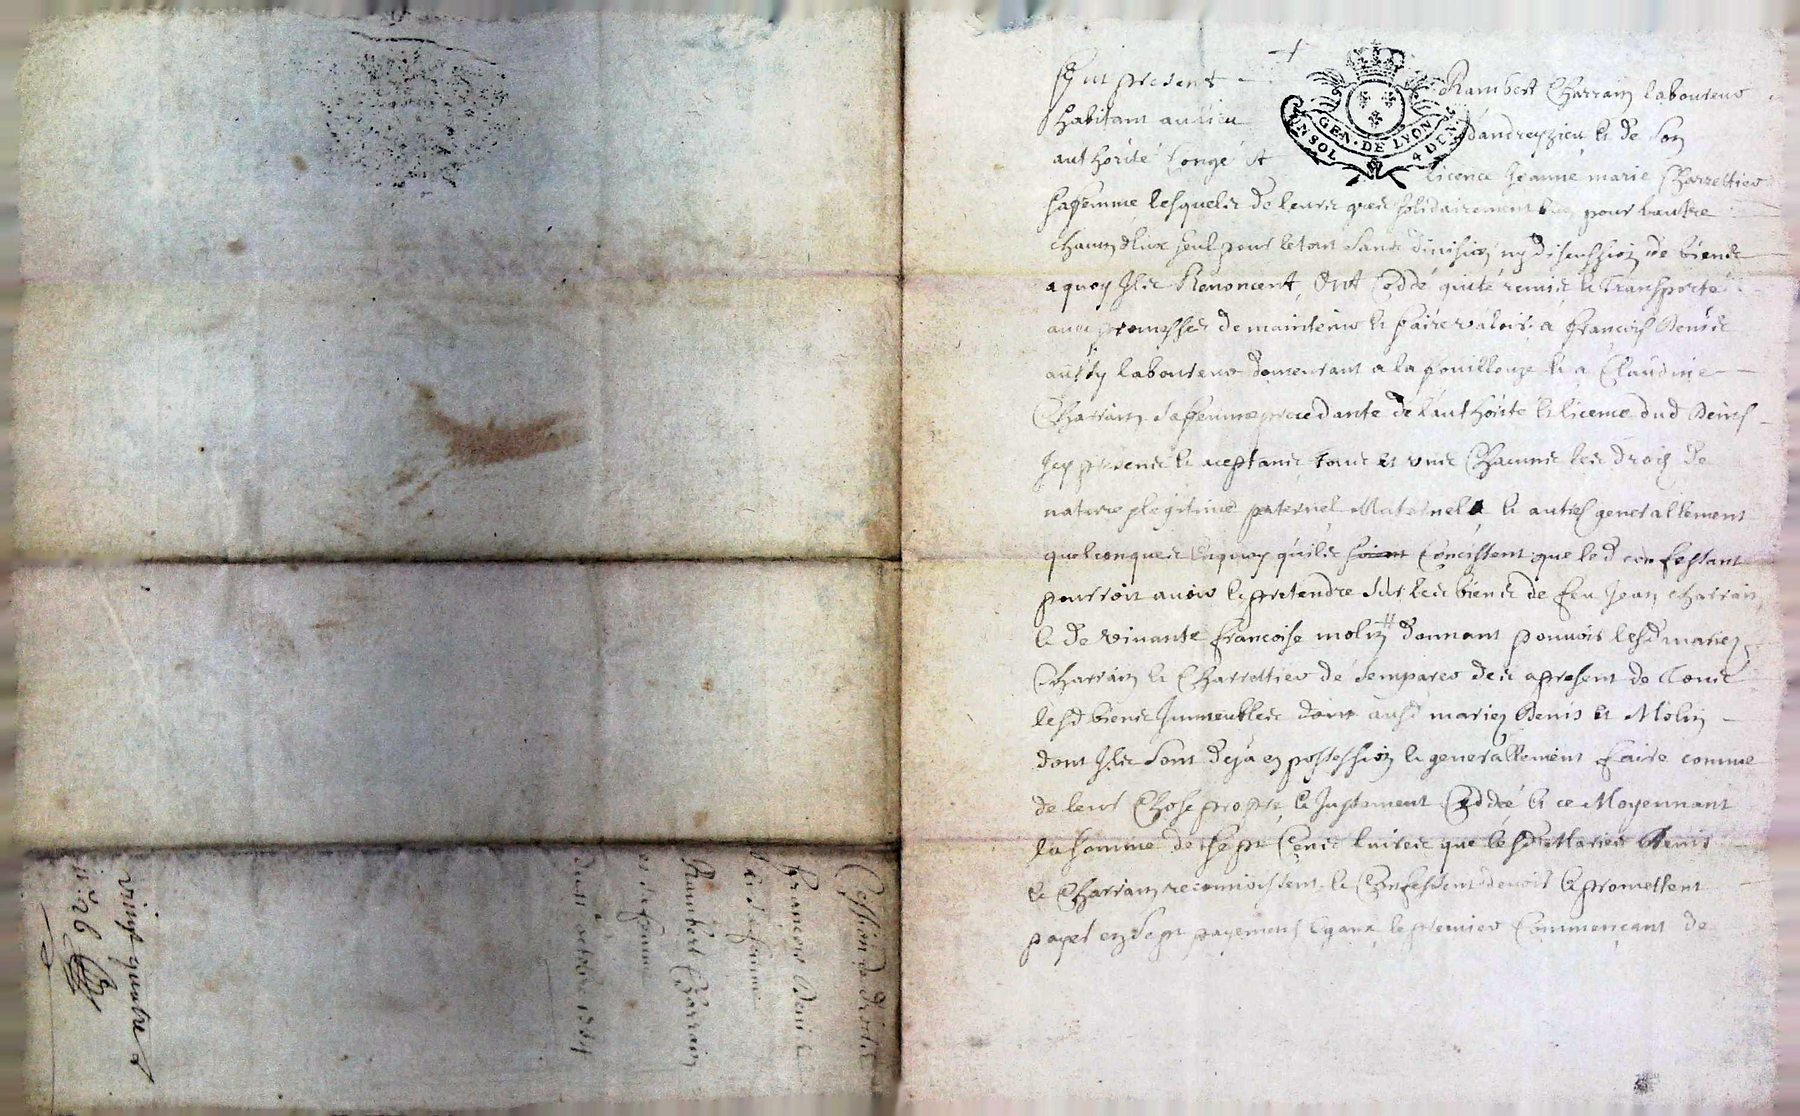 Fut present Rambert Charrain laboureur
habitant au lieu d'andreyzieu et de son
authorité congé et licence Jeanne marie Charrettier
sa femme lesquels de leurs grés solidairement l'un pour l'autre
chacun d'eux seul pour le tout sans division ny discussion de biens
a quoy Ils Renoncent, Ont Ceddé quité remis et transporté
avec promesses de maintenir et faire valoir a francois Denis
aussy laboureur demeurant a la fouillouze et a Claudine
Charrain sa femme procedante de l'authorité et licence dud Denis
Icy presens et aceptans tous et uns Chacuns les drois de
nature legitime paternel Maternel et autres generallement
quelconques enquoy quils soient Concistent que led confessant
pourroit avoir et pretendre sur les biens de feu Jean charrain
et de vivante francoise molin # donnant pouvoir lesd mariez
Charrain et Charrettier de semparer des apresent de Tous
lesd biens Immeubles dont ausd mariez Denis et Molin
dont Ils sont deja en possession et generallement faire comme
de leur Chose propre et Justement Ceddée et ce Moyennant
la somme de sept Cens livres que lesd Mariés Denis
et Charrain reconnoissent et Confessent devoir et promettent
payer en sept payemens egaux le premier Commençant de
GEN. DE LYON
4 D
Cession de droits
francois Denis
et sa femme
Rambert Charrain
et sa femme
du 11 octobre
vingt quatre
n° 26